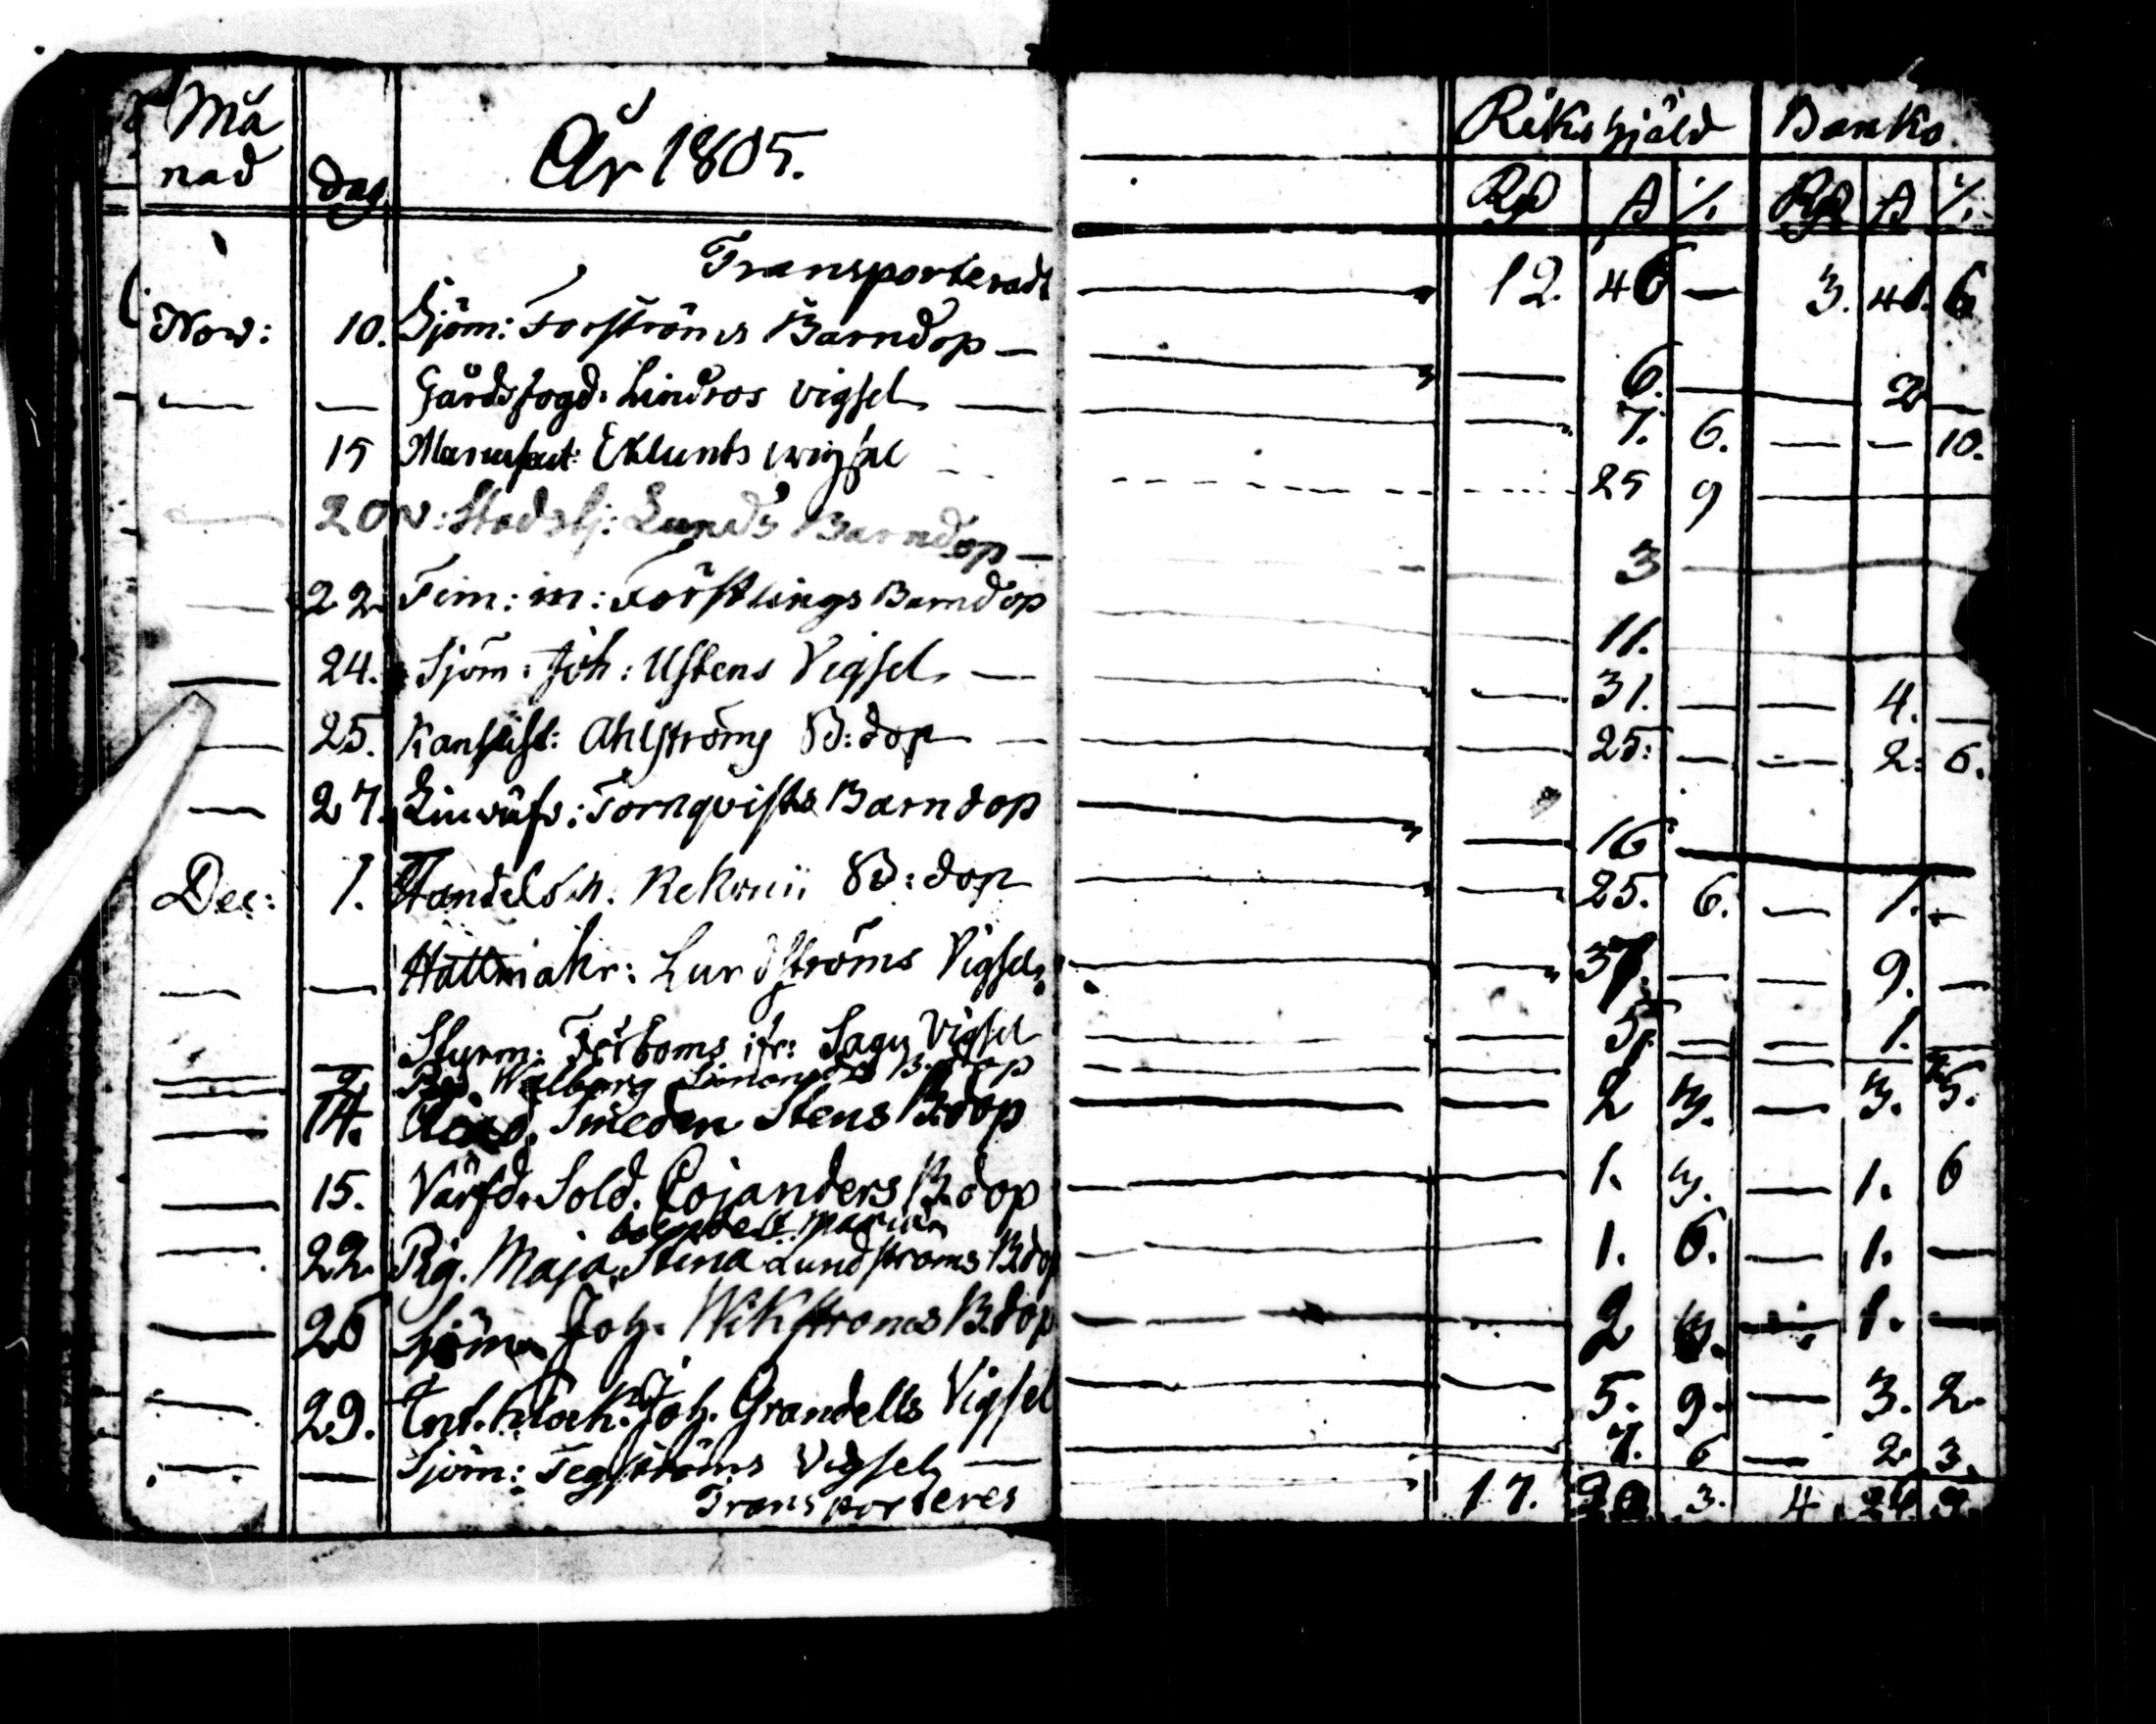 Må Riksgjäld Banko
nad dag År 1805. Rd ß /. Rd ß /.
Transporterad 12. 46 — 3. 41. 6
Nov: 10. Sjöm: Forströms Barndop — — 6. — 2 —
— — Gårdsfogd: Lindros vigsel — — 7. 6. — — 10.
15 Eklunds wigsel 25 9 —
— 20 v: Lunds Barndop — — 3 —
— 22 Tim: m: Förstlings Barndop 11.
— 24. Sjöm: Joh: Ustens Vigsel — — 31. — — 4. —
— 25. Ahlströms B: dop — — 25: — — 2: 6.
— 27. Tornqvists Barndop — 16 —
Dec: 1. Handelsm. B: dop — 25. 6. — 1. —
— — Hattmakr: Lundströms Vigsel — 37. — — 9. —
— — Styrm: Vigsel — 5. — — 1.
— Walborg B. dop
— 14. Smeden Stens B. dop — 2 3. — 3. 5.
— 15. Värfd. Sold. Cojanders B. dop 1. 3. — 1. 6
— 22. Pig. Maja Stina Lundströms B. dop 1. 6. — 1. —
— 26 Sjöm. Joh. Wikströms B. dop 2 — 1. —
— 29. Joh. Grandells Vigsel — 5. 9. — 3. 2.
— — Sjöm: Tegströms Vigsel — 7. 6 — 2 3.
Transporteres 17. 3. 4.